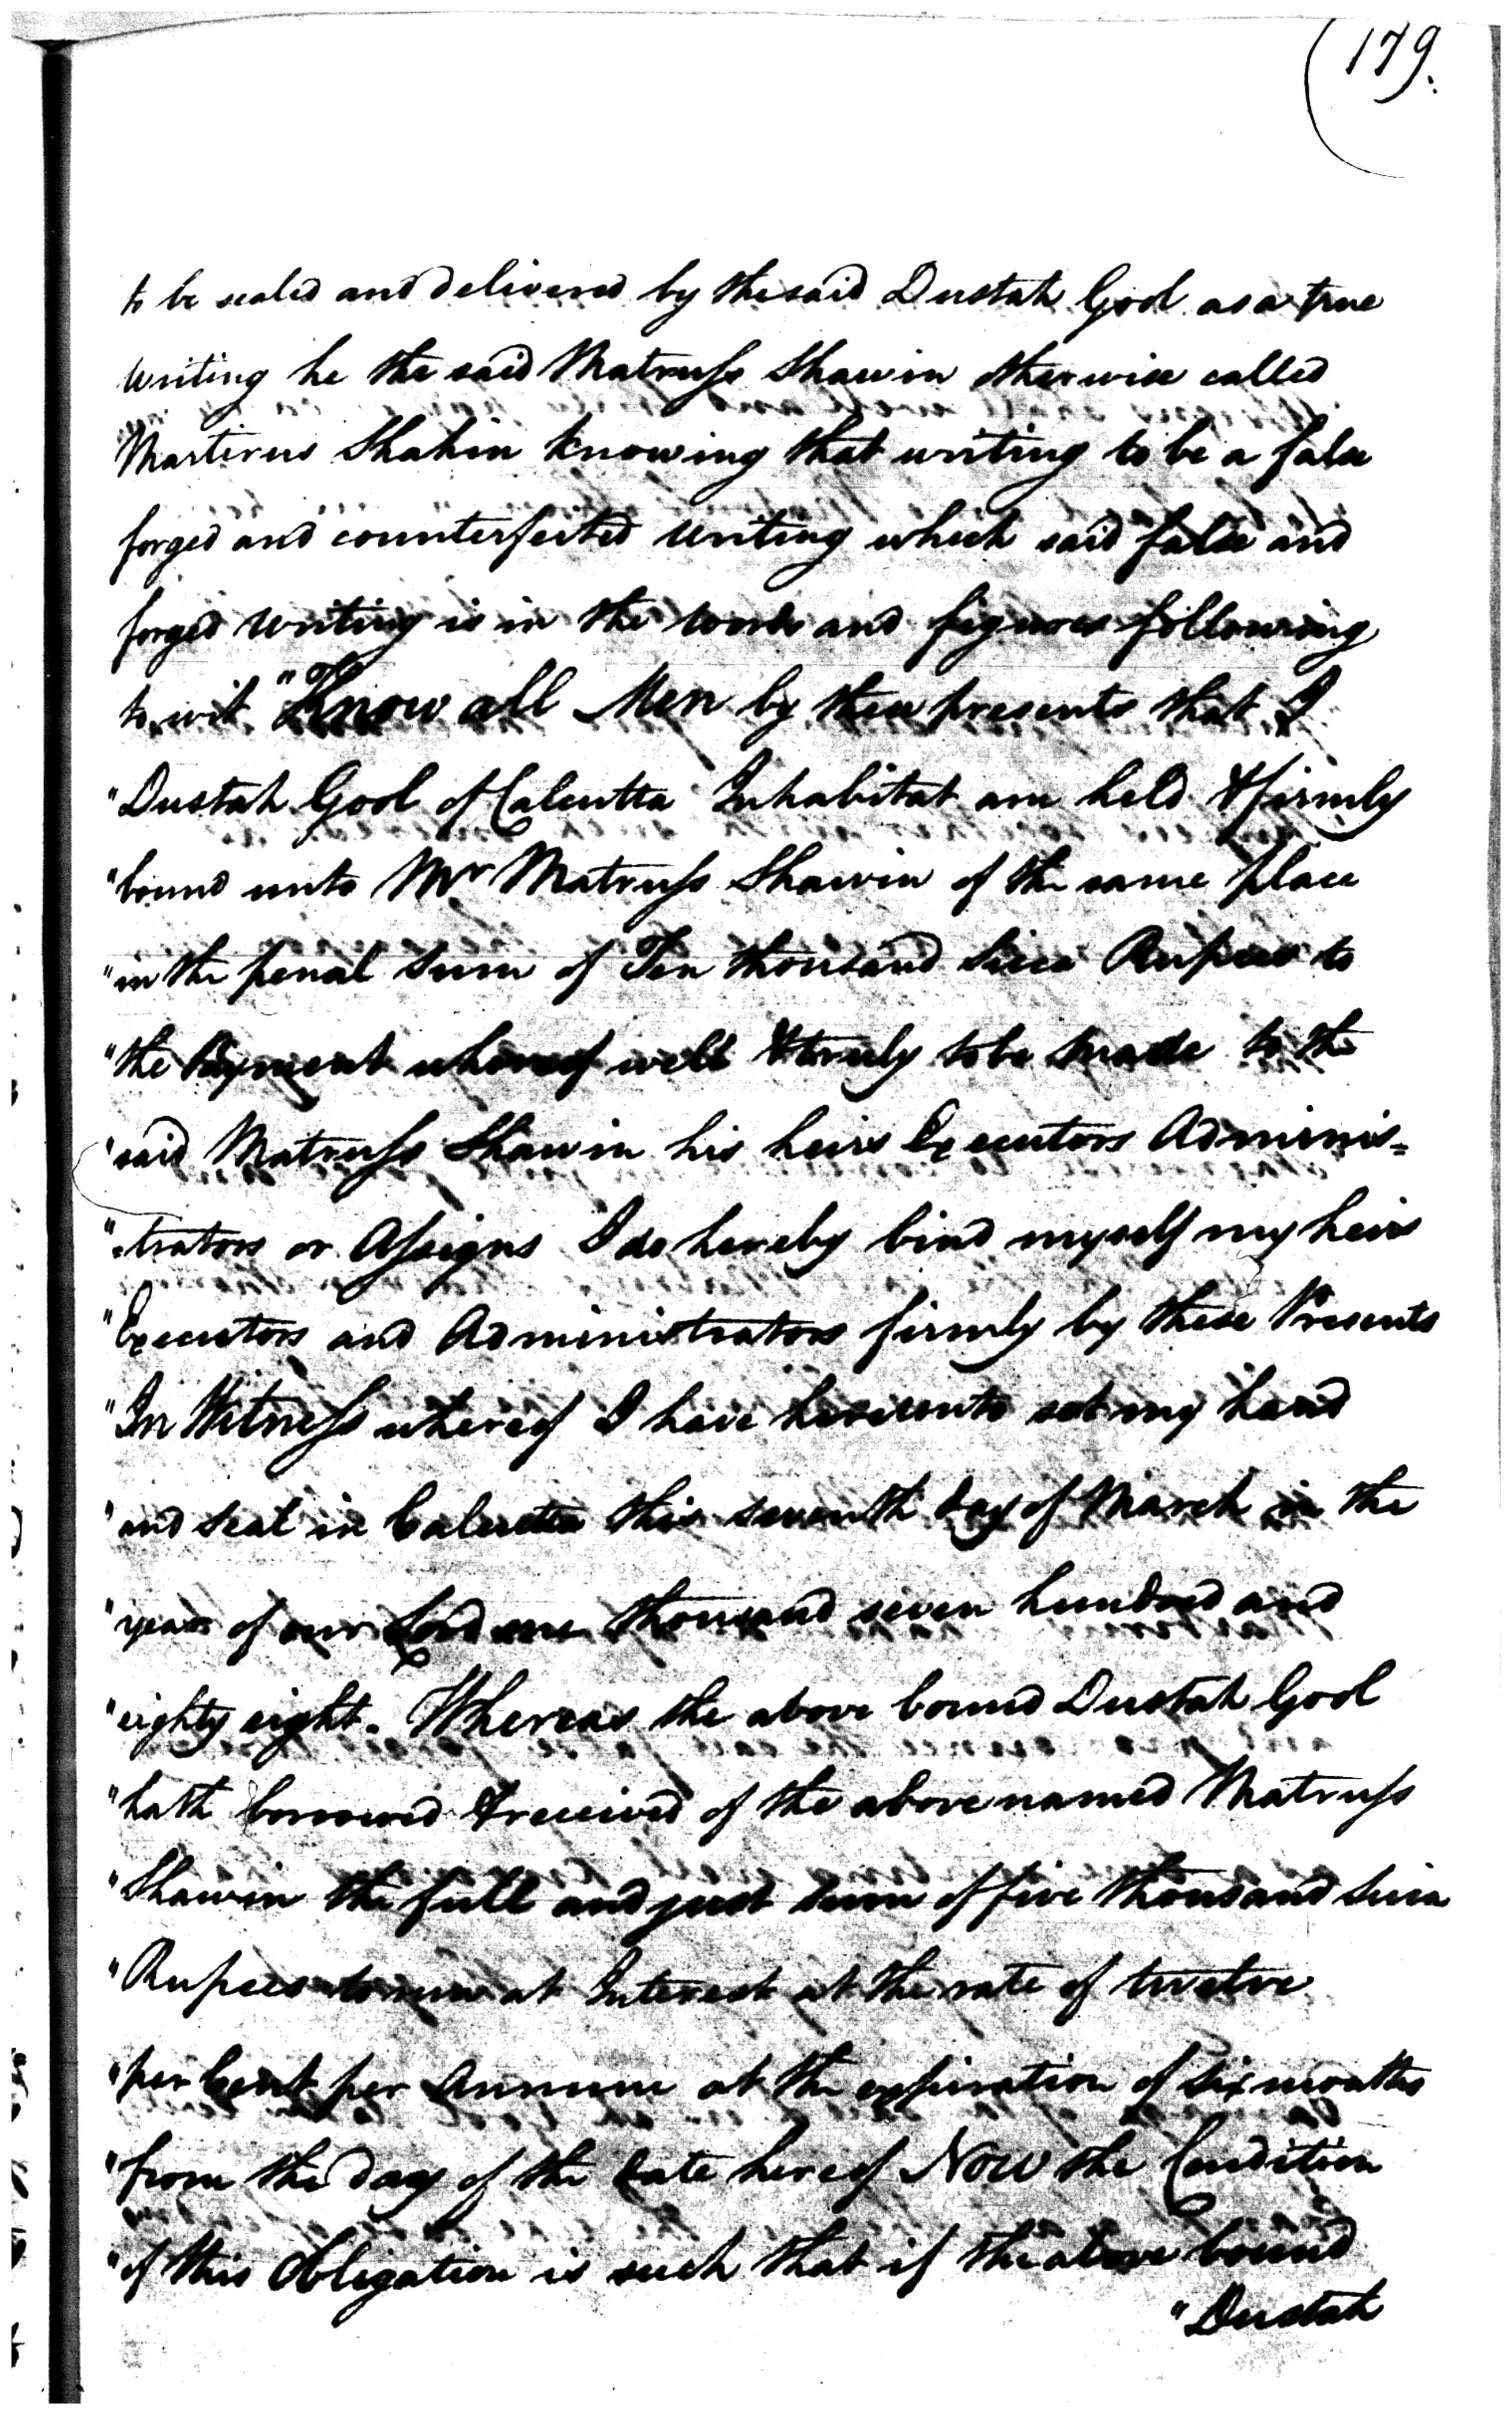 179.
to be sealed and delivered by the said Dustah Gool as a true
writing he the said Matruss Shawin otherwise called
Martirus Shahin knowing that writing to be a false
forged and counterfeited writing which said false and
forged writing is in the words and figures following
to wit "Know all Men by these presents that I
"Dustah Gool of Calcutta Inhabitat am held & firmly
"bound unto Mr Matruss Shawin of the same place
"in the penal sum of Ten thousand Sicca Rupees to
"the Payment whereof well & truly to be made to the
"said Matruss Shawin his heirs Executors Adminis=
"-trators or Assigns I do hereby bind myself my heirs
"Executors and Administrators firmly by these Presents
"In Witness whereof I have hereunto set my hand
"and seal in Calcutta this seventh day of March in the
"year of our Lord one thousand seven hundred and
"eighty eight. Whereas the above bound Dustah Gool
"hath borrowed & received of the above named Matruss
"Shawin the full and just sum of five thousand Sicca
"Rupees to run at Interest at the rate of twelve
"per Cent per Annum at the expiration of six months
"from the day of the date hereof Now the Condition
"of this Obligation is such that if the above bound
"Dustah